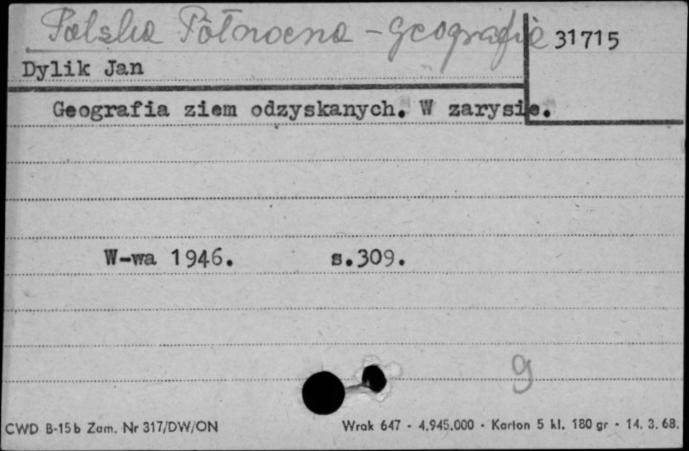 Polska Północna - geografia 31715
Dylik Jan
Geografia ziem odzyskanych. W zarysie.
W-wa 1946. s.309.
g
CWD B-15b Zam. Nr 317/DW/ON Wrak 647 - 4.945.000 - Karton 5 kl. 180 gr - 14. 3. 68.